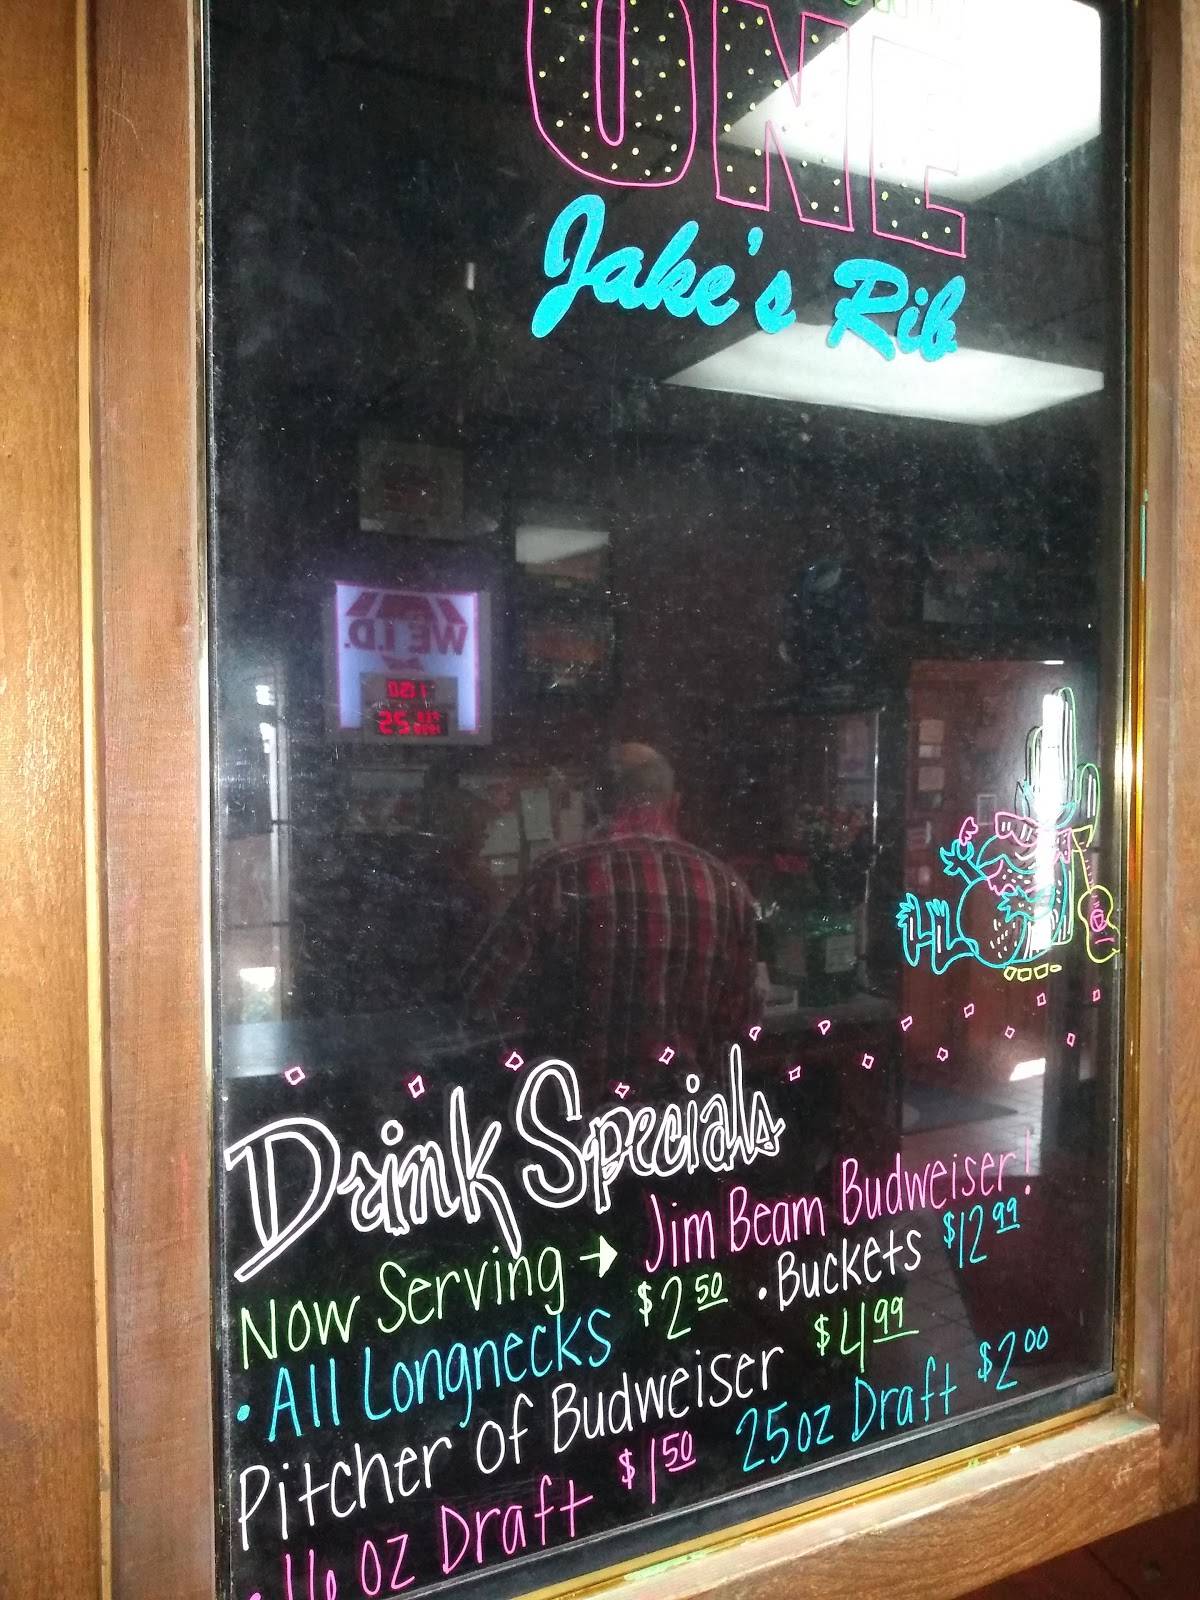 ONE
Jake's Rib
WE I.D.
Drink Specials
Now Serving → Jim Beam Budweiser!
• All Longnecks $2.50 • Buckets $12.99
Pitcher of Budweiser $4.99
• 16 oz Draft $1.50 25oz Draft $2.00